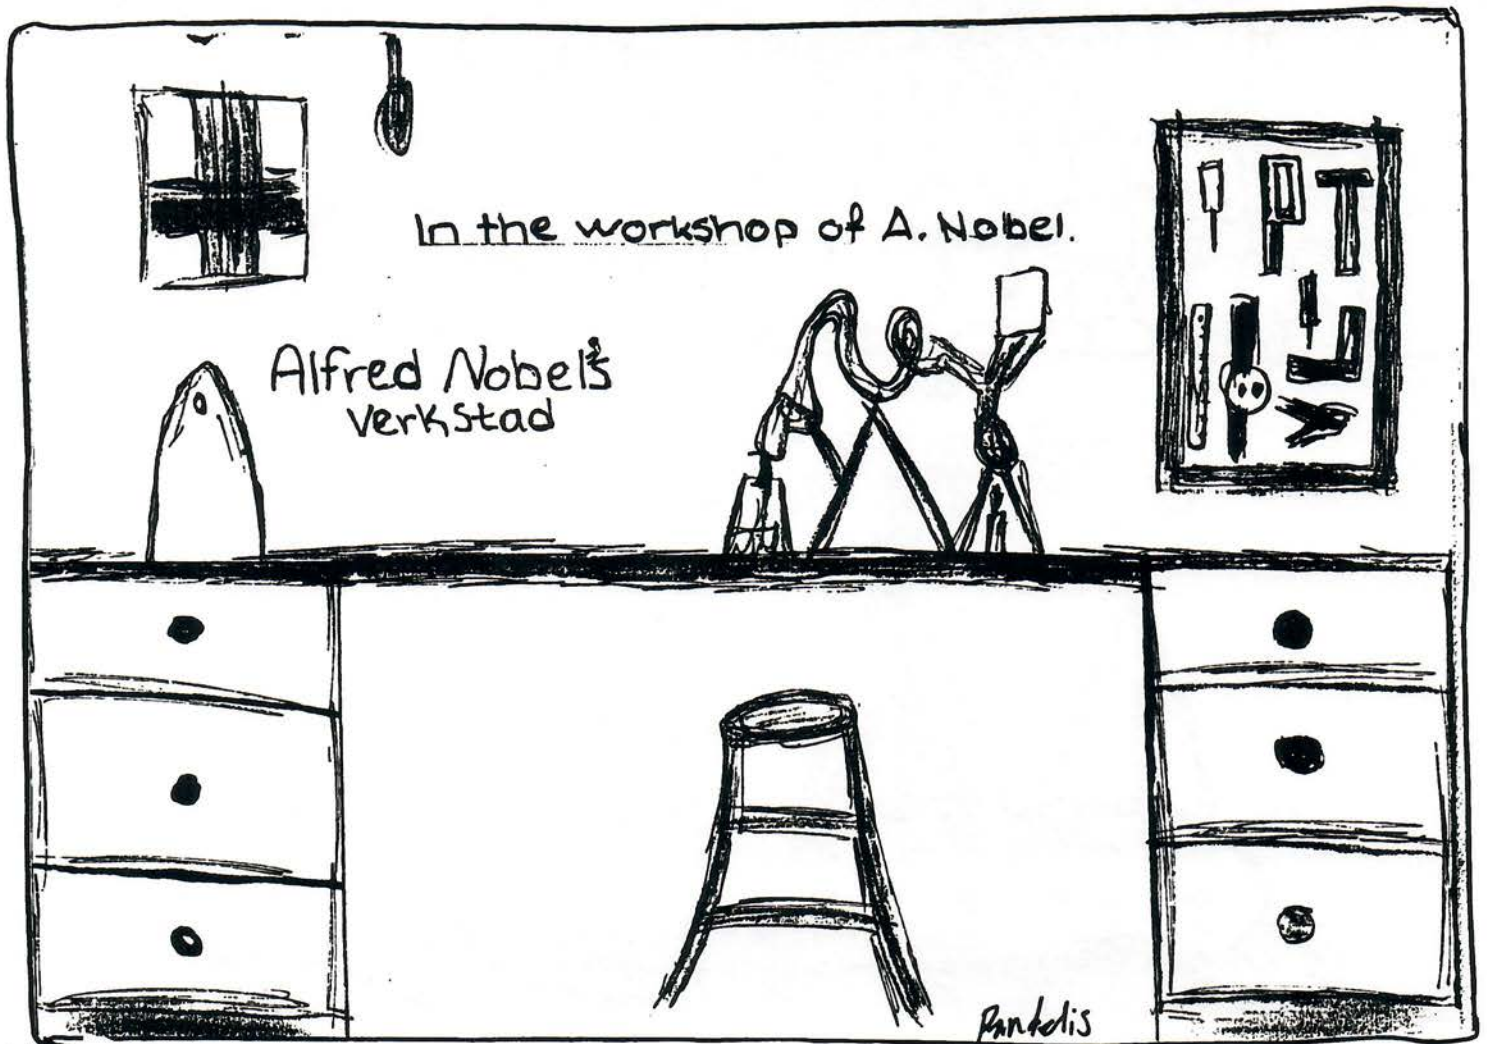 In the workshop of A. Nobel.
Alfred Nobel's
Verkstad
Pantelis